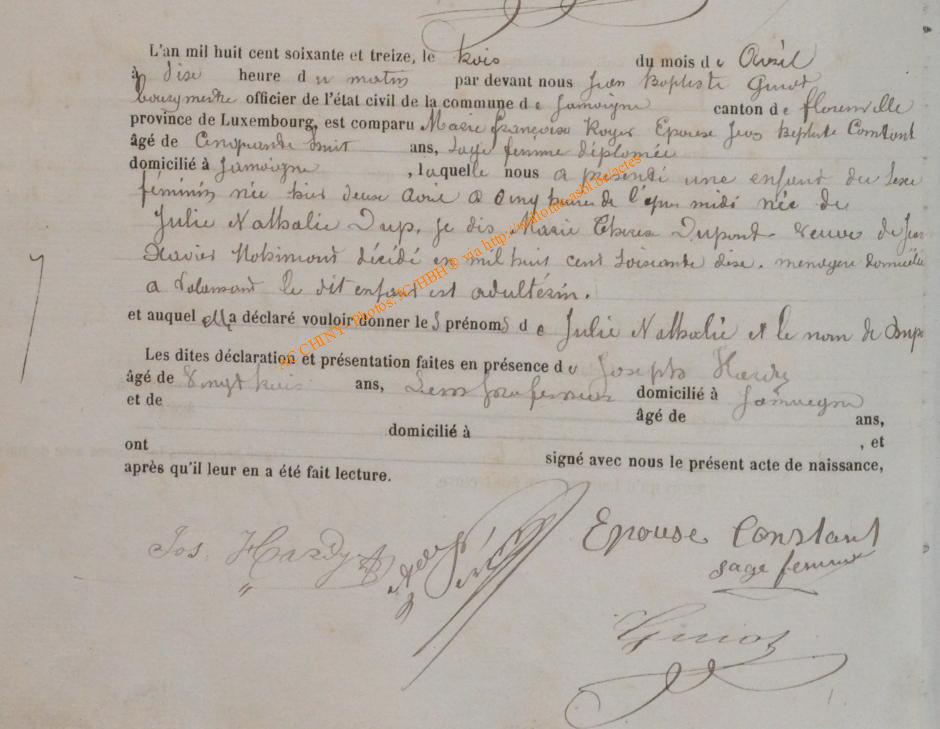 L'an mil huit cent soixante et treize, le trois du mois de Avril
à dise heure du matin par devant nous Jean Baptiste Guiot
bourgmestre officier de l'état civil de la commune de Jamoigne canton de florenville
province de Luxembourg, est comparu Marie françoise Roger Epouse Jean Baptiste Constant
âgé de Cinquante huit ans, sage femme diplomée
domicilié à Jamoigne, laquelle nous a présenté une enfant du sexe
féminin née hier deuse avril a cinq heures de l'apres midi née de
Julie Nathalie Dup, je dis Marie Therese Dupont veuve de Jean
Xavier décidé en mil huit cent soisante dise. menagere domiciliée
a le dit enfant est adultérin.
et auquel ella a déclaré vouloir donner le S prénomS de Julie Nathalie et le nom de Dup
Les dites déclaration et présentation faites en présence de Joseph Hardy
âgé de Vingt trois ans, domicilié à Jamoigne
et de âgé de ans,
domicilié à , et
ont signé avec nous le présent acte de naissance,
après qu'il leur en a été fait lecture.
Jos. Hardy
Epouse Constant
sage femme
Guiot
AC CHINY - Photos: IC/HBH © via http://www.lotrivacsbl.be/actes